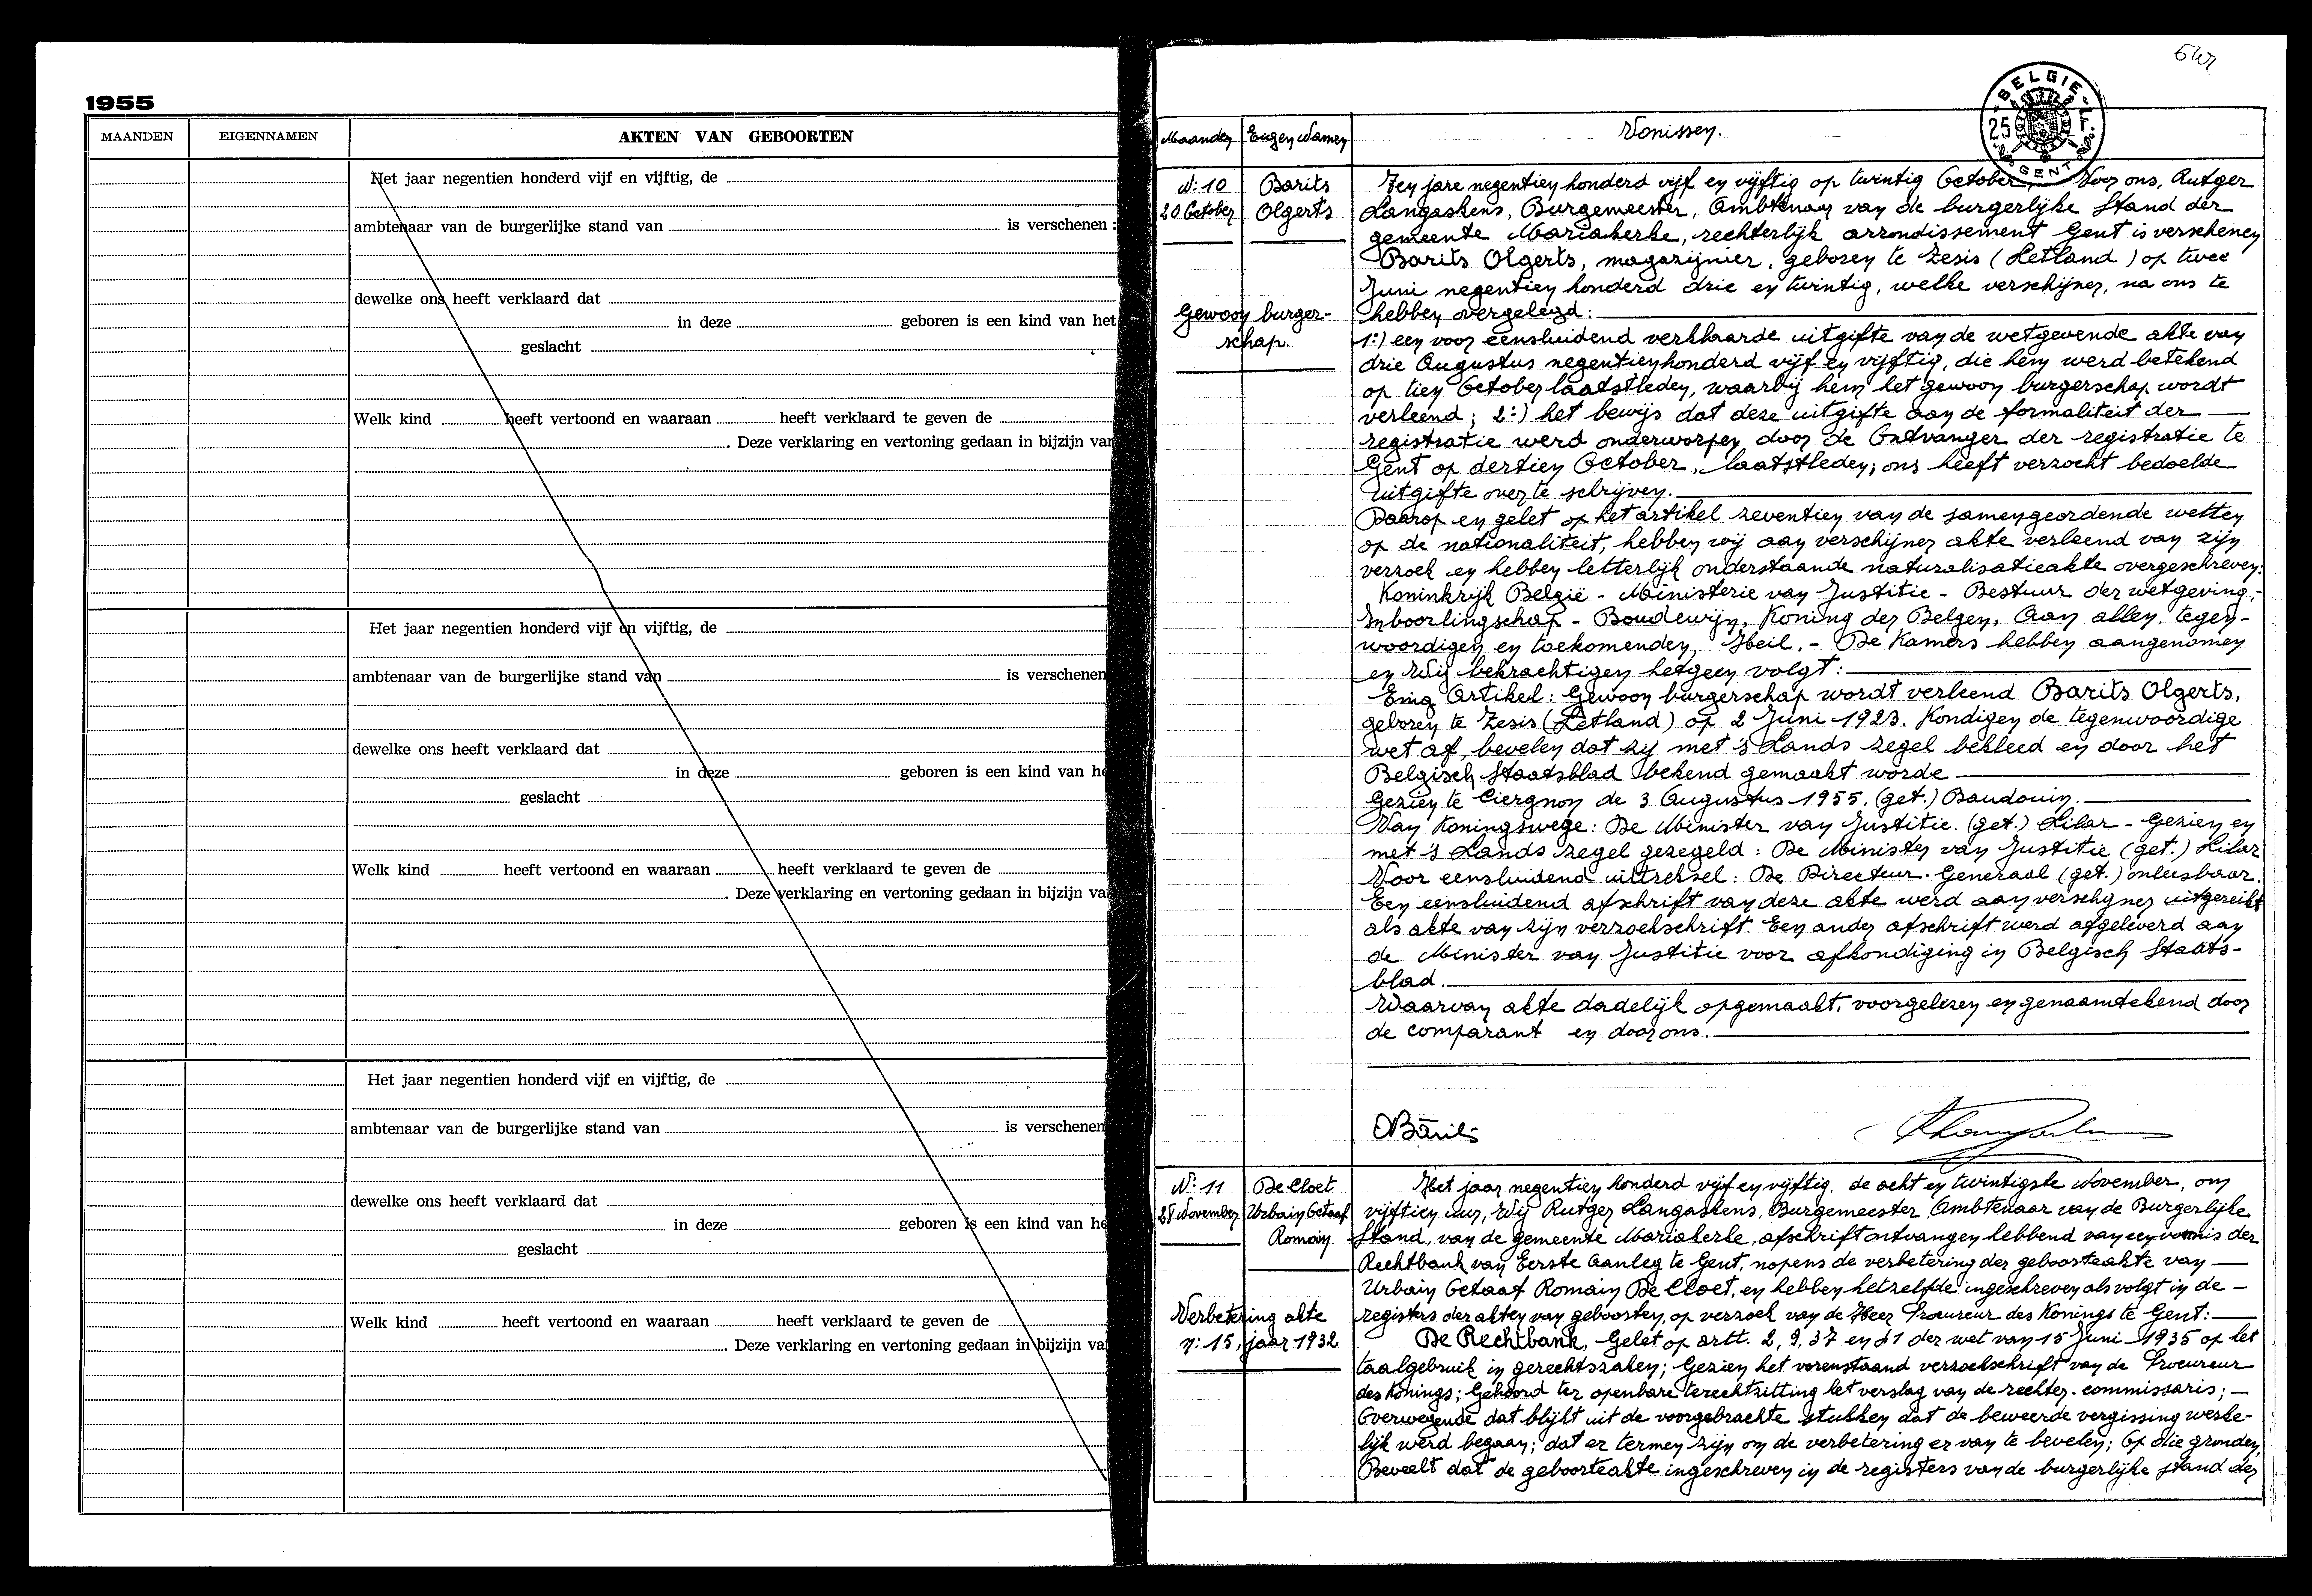 1955
MAANDEN EIGENNAMEN AKTEN VAN GEBOORTEN
Het jaar negentien honderd vijf en vijftig, de
ambtenaar van de burgerlijke stand van is verschenen :
dewelke ons heeft verklaard dat
in deze geboren is een kind van het
geslacht
Welk kind heeft vertoond en waaraan heeft verklaard te geven de
. Deze verklaring en vertoning gedaan in bijzijn van
Het jaar negentien honderd vijf en vijftig, de
ambtenaar van de burgerlijke stand van is verschenen
dewelke ons heeft verklaard dat
in deze geboren is een kind van he
geslacht
Welk kind heeft vertoond en waaraan heeft verklaard te geven de
. Deze verklaring en vertoning gedaan in bijzijn va
Het jaar negentien honderd vijf en vijftig, de
ambtenaar van de burgerlijke stand van is verschenen
dewelke ons heeft verklaard dat
in deze geboren is een kind van he
geslacht
Welk kind heeft vertoond en waaraan heeft verklaard te geven de
. Deze verklaring en vertoning gedaan in bijzijn va
BELGIE
25
GENT
Maanden Eigen Namen Vonissen.
N: 10
20 October
Barits
Olgerts
Gewoon burger-
schap.
Ten jare negentien honderd vijf en vijftig op twintig October, Voor ons, Rutger
Langaskens, Burgemeester, Ambtenaar van de burgerlijke Stand der
gemeente Mariakerke, rechterlijk arrondissement Gent is verschenen
Barits Olgerts, magazijnier, geboren te Zesis (Letland) op twee
Juni negentien honderd drie en twintig, welke verschijner, na ons te
hebben overgelegd:
1:) een voor eensluidend verklaarde uitgifte van de wetgevende akte van
drie Augustus negentienhonderd vijf en vijftig, die hem werd betekend
op tien October laatstleden, waarbij hem het gewoon burgerschap wordt
verleend; 2:) het bewijs dat deze uitgifte aan de formaliteit der
registratie werd onderworpen door de Ontvanger der registratie te
Gent op dertien October, laatstleden; ons heeft verzocht bedoelde
uitgifte over te schrijven.
Daarop en gelet op het artikel zeventien van de samengeordende wetten
op de nationaliteit, hebben wij aan verschijner akte verleend van zijn
verzoek en hebben letterlijk onderstaande naturalisatieakte overgeschreven:
Koninkrijk België - Ministerie van Justitie - Bestuur der wetgeving.-
Inboorlingschap - Boudewijn, Koning der Belgen, Aan allen, tegen-
woordigen en toekomenden, Heil. - De Kamers hebben aangenomen
en Wij bekrachtigen hetgeen volgt:
Enig Artikel: Gewoon burgerschap wordt verleend Barits Olgerts,
geboren te Zesis (Letland) op 2 Juni 1923. Kondigen de tegenwoordige
wet af, bevelen dat zij met 's Lands zegel bekleed en door het
Belgisch Staatsblad bekend gemaakt worde
Gezien te Ciergnon de 3 Augustus 1955. (get.) Baudouin.
Van Koningswege: De Minister van Justitie. (get.) Lilar - Gezien en
met 's Lands zegel gezegeld: De Minister van Justitie (get.) Lilar
Voor eensluidend uittreksel: De Directeur-Generaal (get.) onleesbaar.
Een eensluidend afschrift van deze akte werd aan verschijner uitgereikt
als akte van zijn verzoekschrift. Een ander afschrift werd afgeleverd aan
de Minister van Justitie voor afkondiging in Belgisch Staats-
blad.
Waarvan akte dadelijk opgemaakt, voorgelezen en genaamtekend door
de comparant en door ons.
OBarits
N: 11
28 November
De Cloet
Urbain Octaaf
Romain
Verbetering akte
n: 15, jaar 1932
Het jaar negentien honderd vijf en vijftig, de acht en twintigste November, om
vijftien uur, Wij Rutger Langaskens, Burgemeester Ambtenaar van de Burgerlijke
Stand, van de gemeente Mariakerke, afschrift ontvangen hebbend van een vonnis der
Rechtbank van Eerste Aanleg te Gent, nopens de verbetering der geboorteakte van
Urbain Octaaf Romain De Cloet, en hebben hetzelfde ingeschreven als volgt in de
registers der akten van geboorten, op verzoek van de Heer Procureur des Konings te Gent:
De Rechtbank, Gelet op artt. 2, 9, 37 en 41 der wet van 15 Juni 1935 op het
taalgebruik in gerechtszaken; Gezien het vorenstaand verzoekschrift van de Procureur
des Konings; Gehoord ter openbare terechtzitting het verslag van de rechter-commissaris;
Overwegende dat blijkt uit de voorgebrachte stukken dat de beweerde vergissing werke-
lijk werd begaan; dat er termen zijn om de verbetering er van te bevelen; Op die gronden,
Beveelt dat de geboorteakte ingeschreven in de registers van de burgerlijke stand der